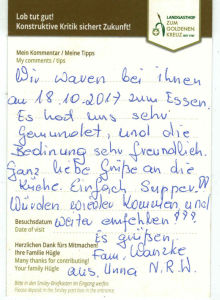 Lob tut gut!
Konstruktive Kritik sichert Zukunft!
LANDGASTHOF
ZUM
GOLDENEN
KREUZ
Mein Kommentar / Meine Tipps
My comments / tips
Wir waren bei ihnen
am 18.10.2017 zum Essen.
Es hat uns sehr
gemundet, und die
Bedinung sehr freundlich.
Ganz liebe Grüße an die
Küche. Einfach Supper.
Würden wieder kommen, und
Besuchsdatum
weiter empfehlen!!!
Date of visit
Es grüßen
Herzlichen Dank fürs Mitmachen!
Ihre Familie Hügle
Fam. Wanzke
Many thanks for contributing!
Your family Hügle
aus. Unna N.R.W.
Bitte in den Smiley-Briefkasten im Eingang werfen.
Please deposit in the Smiley post box in the entrance.